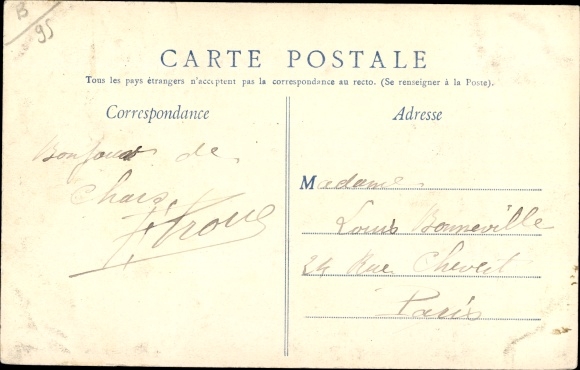 B
95
CARTE POSTALE
Tous les pays étrangers n'acceptent pas la correspondance au recto. (Se renseigner à la Poste).
Correspondance
Adresse
Bonjour de
Chars
Madame
Louis Bonneville
24 Rue Chevert
Paris